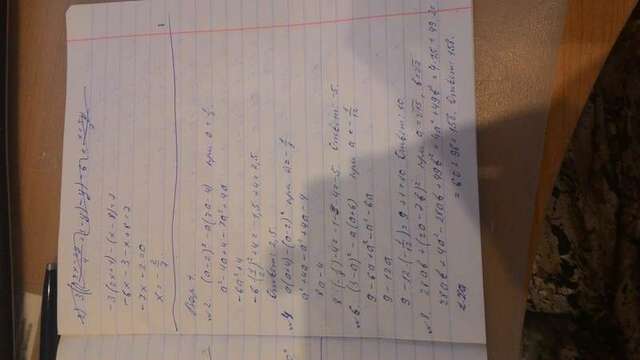 -3(2x+1)-(x-8)=7
-6x-3-x+8=7
-7x-2=0
x=-2/7
1
Вар 1.
№2. (a-2)²-a(7a-4) при a=1/2.
a²-4a+4-7a²+4a
-6a²+4
-6(1/2)²+4=-1,5+4=2,5
Ответ: 2,5.
№4. a(a+4)-(a-2)² при a=-1/8
a²+4a-a²+4a-4
8a-4
8·(-1/8)-4=-1-4=-5. Ответ: -5.
№6. (3-a)²-a(a+6) при a=-1/12
9-6a+a²-a²-6a
9-12a
9-12·(-1/12)=9+1=10 Ответ: 10.
№8. 28ab+(2a-7b)² при a=√15, b=√2
28ab+4a²-28ab+49b²=4a²+49b²=4·15+49·2=
=60+98=158. Ответ: 158.